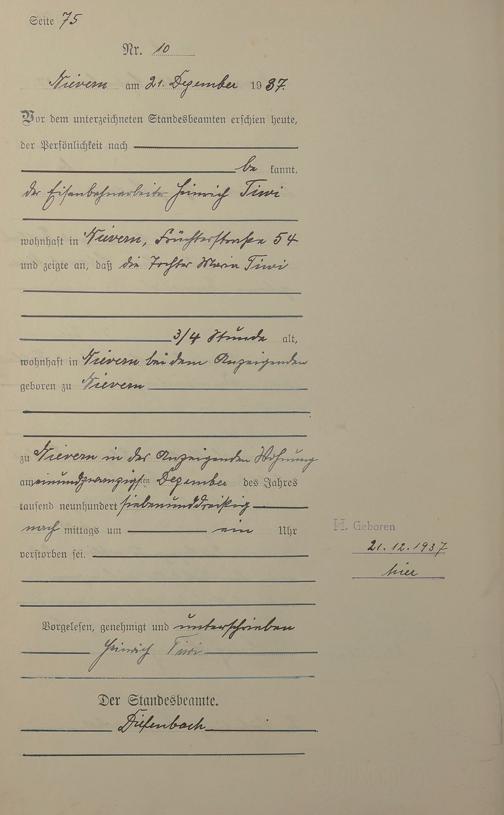 Seite 75
Nr. 10
Nievern am 21. Dezember 1937.
Vor dem unterzeichneten Standesbeamten erschien heute,
der Persönlichkeit nach
be kannt,
der Eisenbahnarbeiter Heinrich Tiwi
wohnhaft in Nievern, Früchterstraße 54
und zeigte an, daß die Tochter Maria Tiwi
3/4 Stunde alt,
wohnhaft in Nievern bei dem Anzeigenden
geboren zu Nievern
zu Nievern in des Anzeigenden Wohnung
am einundzwanzigsten Dezember des Jahres
tausend neunhundert siebenunddreißig
nach mittags um ein Uhr
verstorben sei.
H. Geboren
21.12.1937
hier
Vorgelesen, genehmigt und unterschrieben
Heinrich Tiwi
Der Standesbeamte.
Diefenbach